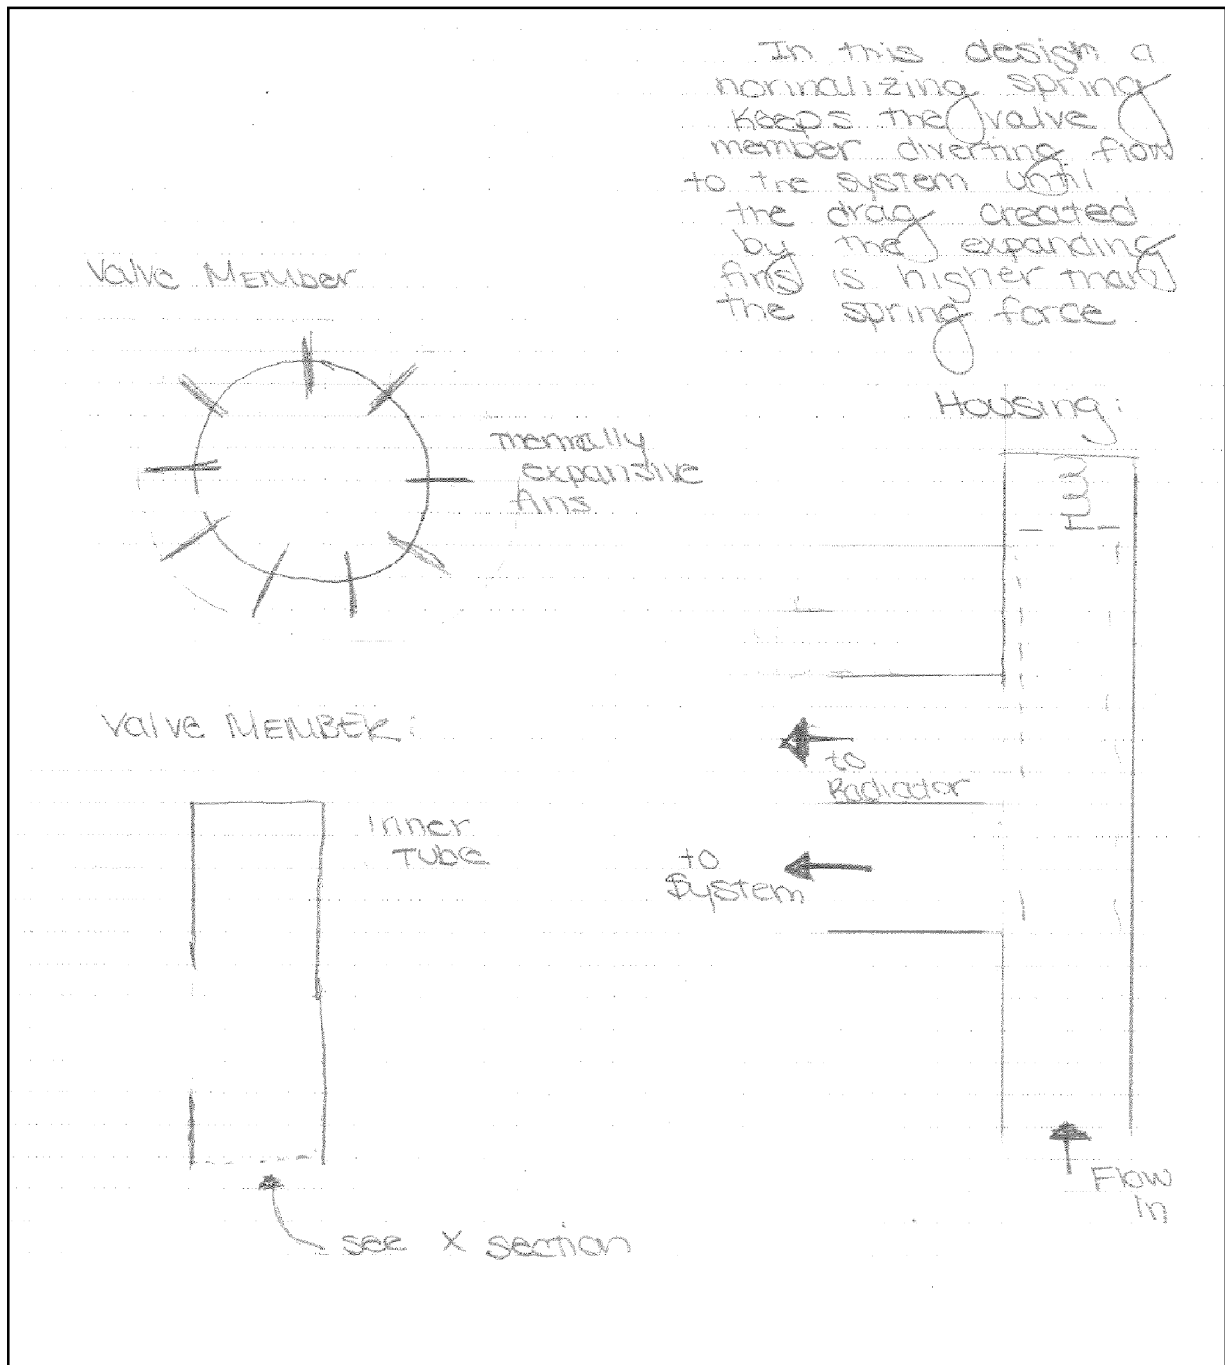 In this design a
normalizing spring
keeps the valve
member diverting flow
to the system until
the drag created
by the expanding
fins is higher than
the spring force
Valve MEMber
Thermally
expansive
fins
Housing:
to
Radiator
Valve MEMBER:
Inner
TUBE
to
System
Flow
in
see X section